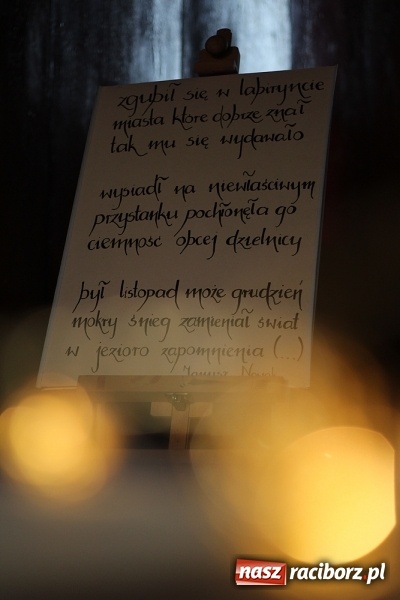 zgubił się w labiryncie
miasta które dobrze znał
tak mu się wydawało
wysiadł na niewłaściwym
przystanku pochłonęła go
ciemność obcej dzielnicy
był listopad może grudzień
mokry śnieg zamieniał świat
w jezioro zapomnienia (...)
Janusz
nasz raciborz.pl